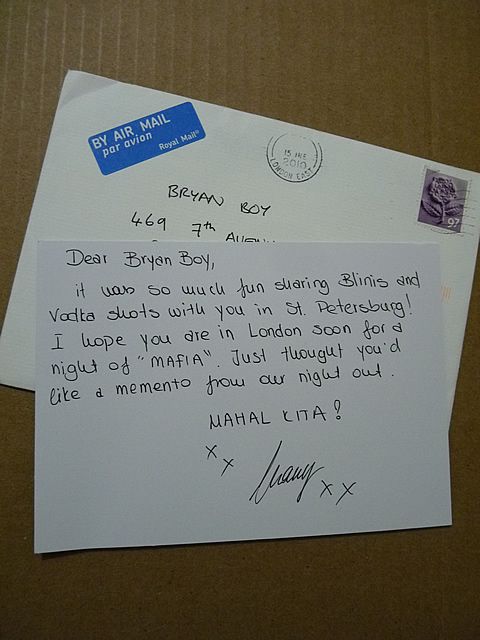 BY AIR MAIL
par avion
Royal Mail®
2010
LONDON EAST
97
BRYAN BOY
469 7th AVENU
Dear Bryan Boy,
it was so much fun sharing Blinis and
Vodka shots with you in St. Petersburg!
I hope you are in London soon for a
night of "MAFIA". Just thought you'd
like a memento from our night out.
MAHAL KITA!
x x
x x